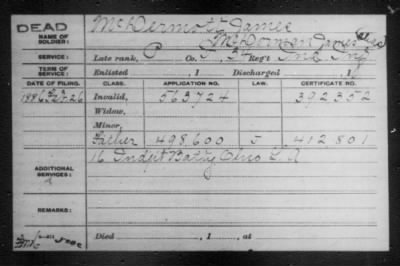 DEAD
NAME OF SOLDIER:
McDermott James
McDorman James
SERVICE:
Late rank, P Co. Reg't Ind Inf
TERM OF SERVICE:
Enlisted , 1 Discharged , 1
DATE OF FILING. CLASS. APPLICATION NO. LAW. CERTIFICATE NO.
1886 Invalid, 563724 392352
Widow,
Minor,
Father 498,600 J 412801
ADDITIONAL SERVICES:
16 Indpt Batty Ohio L A
REMARKS:
Died , 1 , at